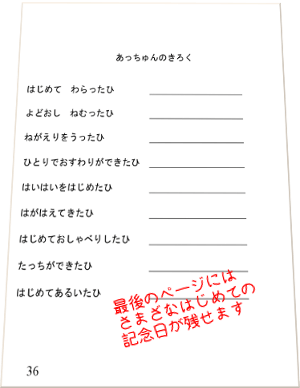 あっちゅんのきろく
はじめて わらったひ
よどおし ねむったひ
ねがえりをうったひ
ひとりでおすわりができたひ
はいはいをはじめたひ
はがはえてきたひ
はじめておしゃべりしたひ
たっちができたひ
はじめてあるいたひ
最後のページには
さまざなはじめての
記念日が残せます
36